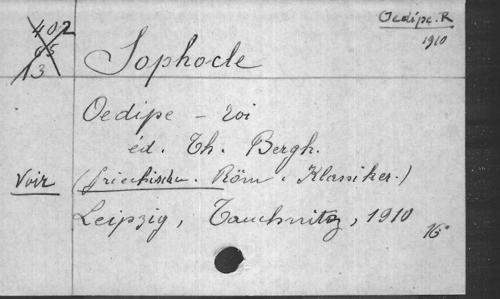 402
65
13
Oedipe.R
1910
Sophocle
Oedipe - roi
éd. Th. Bergh.
Voir (griechische. Röm. Klassiker.)
Leipzig, Tauchnitz, 1910
16°